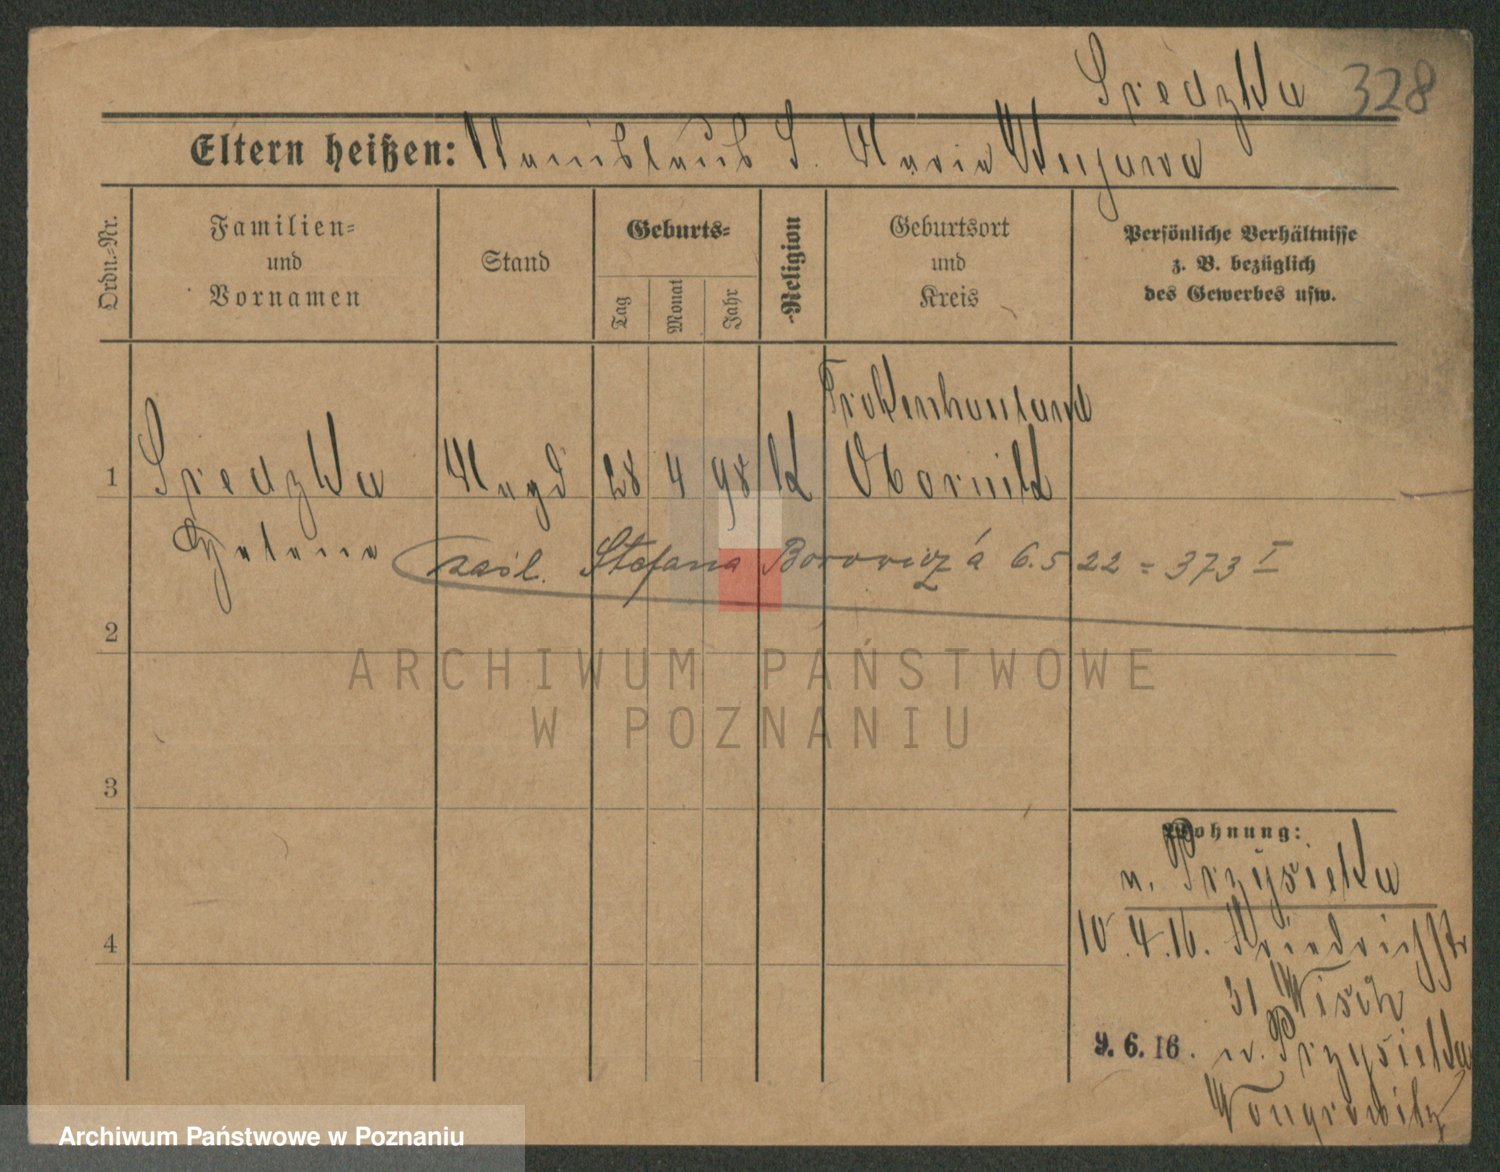 Sredzka 328
Eltern heißen: Stanislaus S. Maria Wujawa
Ordn.-Nr.
Familien-
und
Vornamen
Stand
Geburts-
Tag
Monat
Jahr
Religion
Geburtsort
und
Kreis
Persönliche Verhältnisse
z. B. bezüglich
des Gewerbes usw.
1
Sredzka
Helena
Magd
28 4 98
K
Obornik
zaśl. Stefana Borowicz á 6.5 22 = 373 I
2
3
4
Wohnung:
n. Przysieka
10.4.16. Friedrichstr
31
9.6.16. n. Przysieka
Wongrowitz
ARCHIWUM PAŃSTWOWE
W POZNANIU
Archiwum Państwowe w Poznaniu